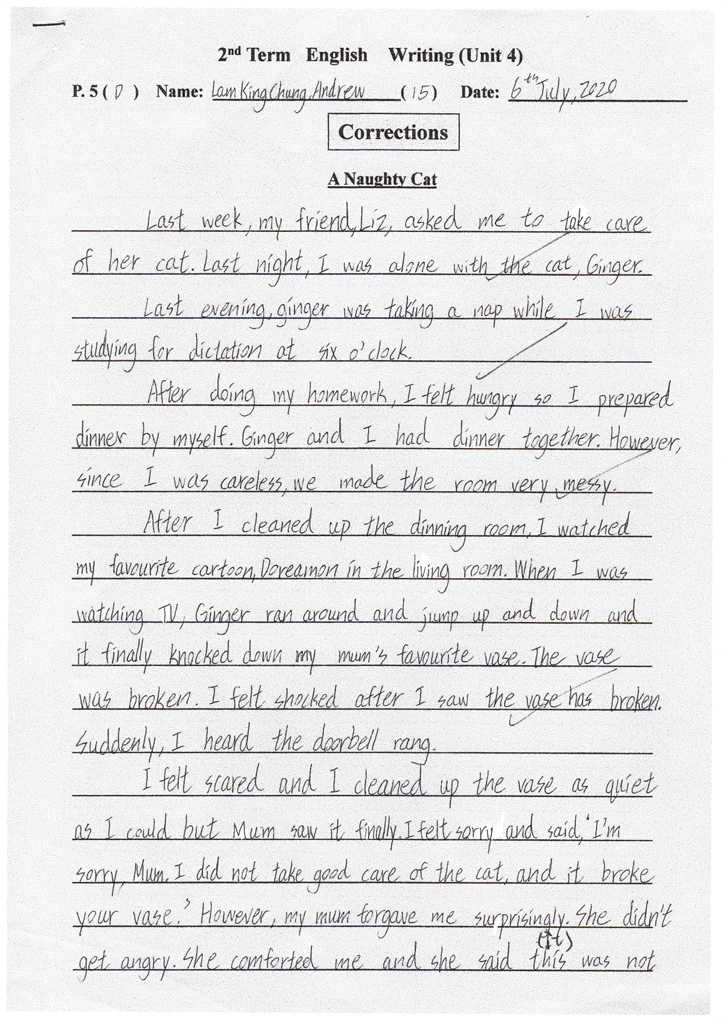 2nd Term English Writing (Unit 4)
P. 5 ( D ) Name: Lam King Chung, Andrew ( 15 ) Date: 6th July, 2020
Corrections
A Naughty Cat
Last week, my friend, Liz, asked me to take care
of her cat. Last night, I was alone with the cat, Ginger.
Last evening, ginger was taking a nap while I was
studying for dictation at six o'clock.
After doing my homework, I felt hungry so I prepared
dinner by myself. Ginger and I had dinner together. However,
since I was careless, we made the room very messy.
After I cleaned up the dinning room, I watched
my favourite cartoon, Doreamon in the living room. When I was
watching TV, Ginger ran around and jump up and down and
it finally knocked down my mum's favourite vase. The vase
was broken. I felt shocked after I saw the vase has broken.
Suddenly, I heard the doorbell rang.
I felt scared and I cleaned up the vase as quiet
as I could but Mum saw it finally. I felt sorry and said, 'I'm
sorry, Mum. I did not take good care of the cat, and it broke
your vase.' However, my mum forgave me surprisingly. She didn't
(it)
get angry. She comforted me and she said this was not